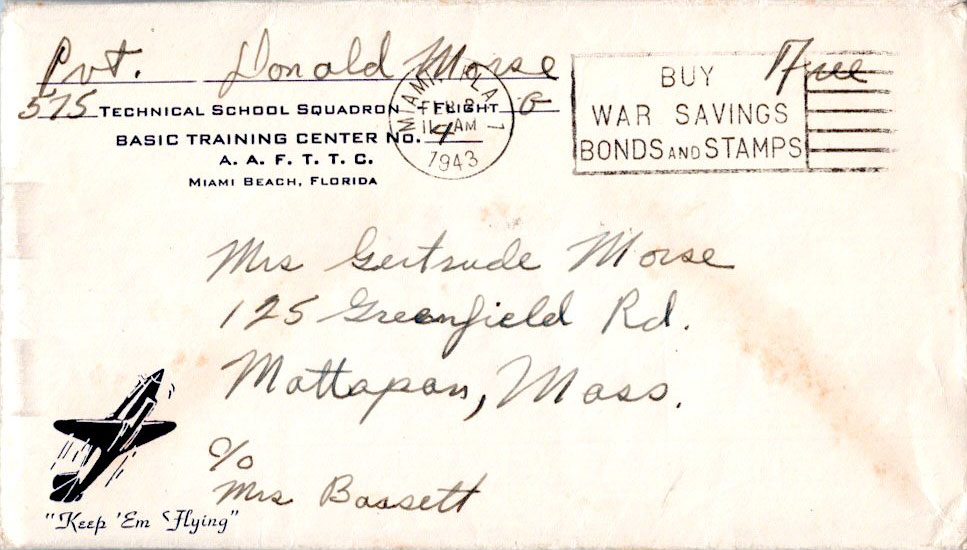 Pvt. Donald Morse
575 TECHNICAL SCHOOL SQUADRON - FLIGHT
BASIC TRAINING CENTER NO. 4
A. A. F. T. T. C.
MIAMI BEACH, FLORIDA
MIAMI, FLA. 1
FEB
11 AM
1943
Free
BUY
WAR SAVINGS
BONDS AND STAMPS
Mrs Gertrude Morse
125 Greenfield Rd.
Mattapan, Mass.
c/o
Mrs Bassett
"Keep 'Em Flying"